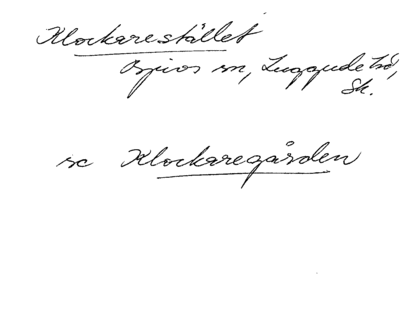 Klockarestället
Bjuvs sn, Luggude hd,
Sk.
se Klockaregården